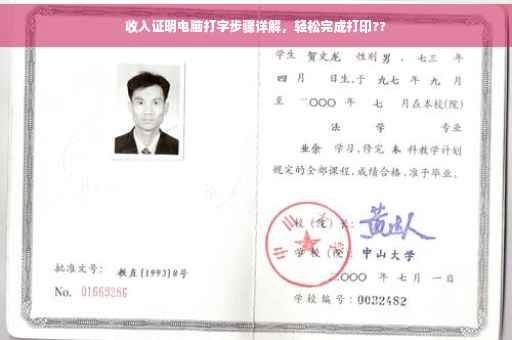 收入证明电脑打字步骤详解，轻松完成打印??
学生 贺文龙 性别 男，七三 年
四 月 日生，于 九七 年 九 月
至 二〇〇〇 年 七 月在本校(院)
法 学 专业
业余 学习，修完 本 科教学计划
规定的全部课程，成绩合格，准予毕业。
校 (院) 长：
学 校 (院)： 中山大学
二〇〇〇 年 七 月 一 日
学校编号：0032482
批准文号： 教直[1993]8号
No. 01669286